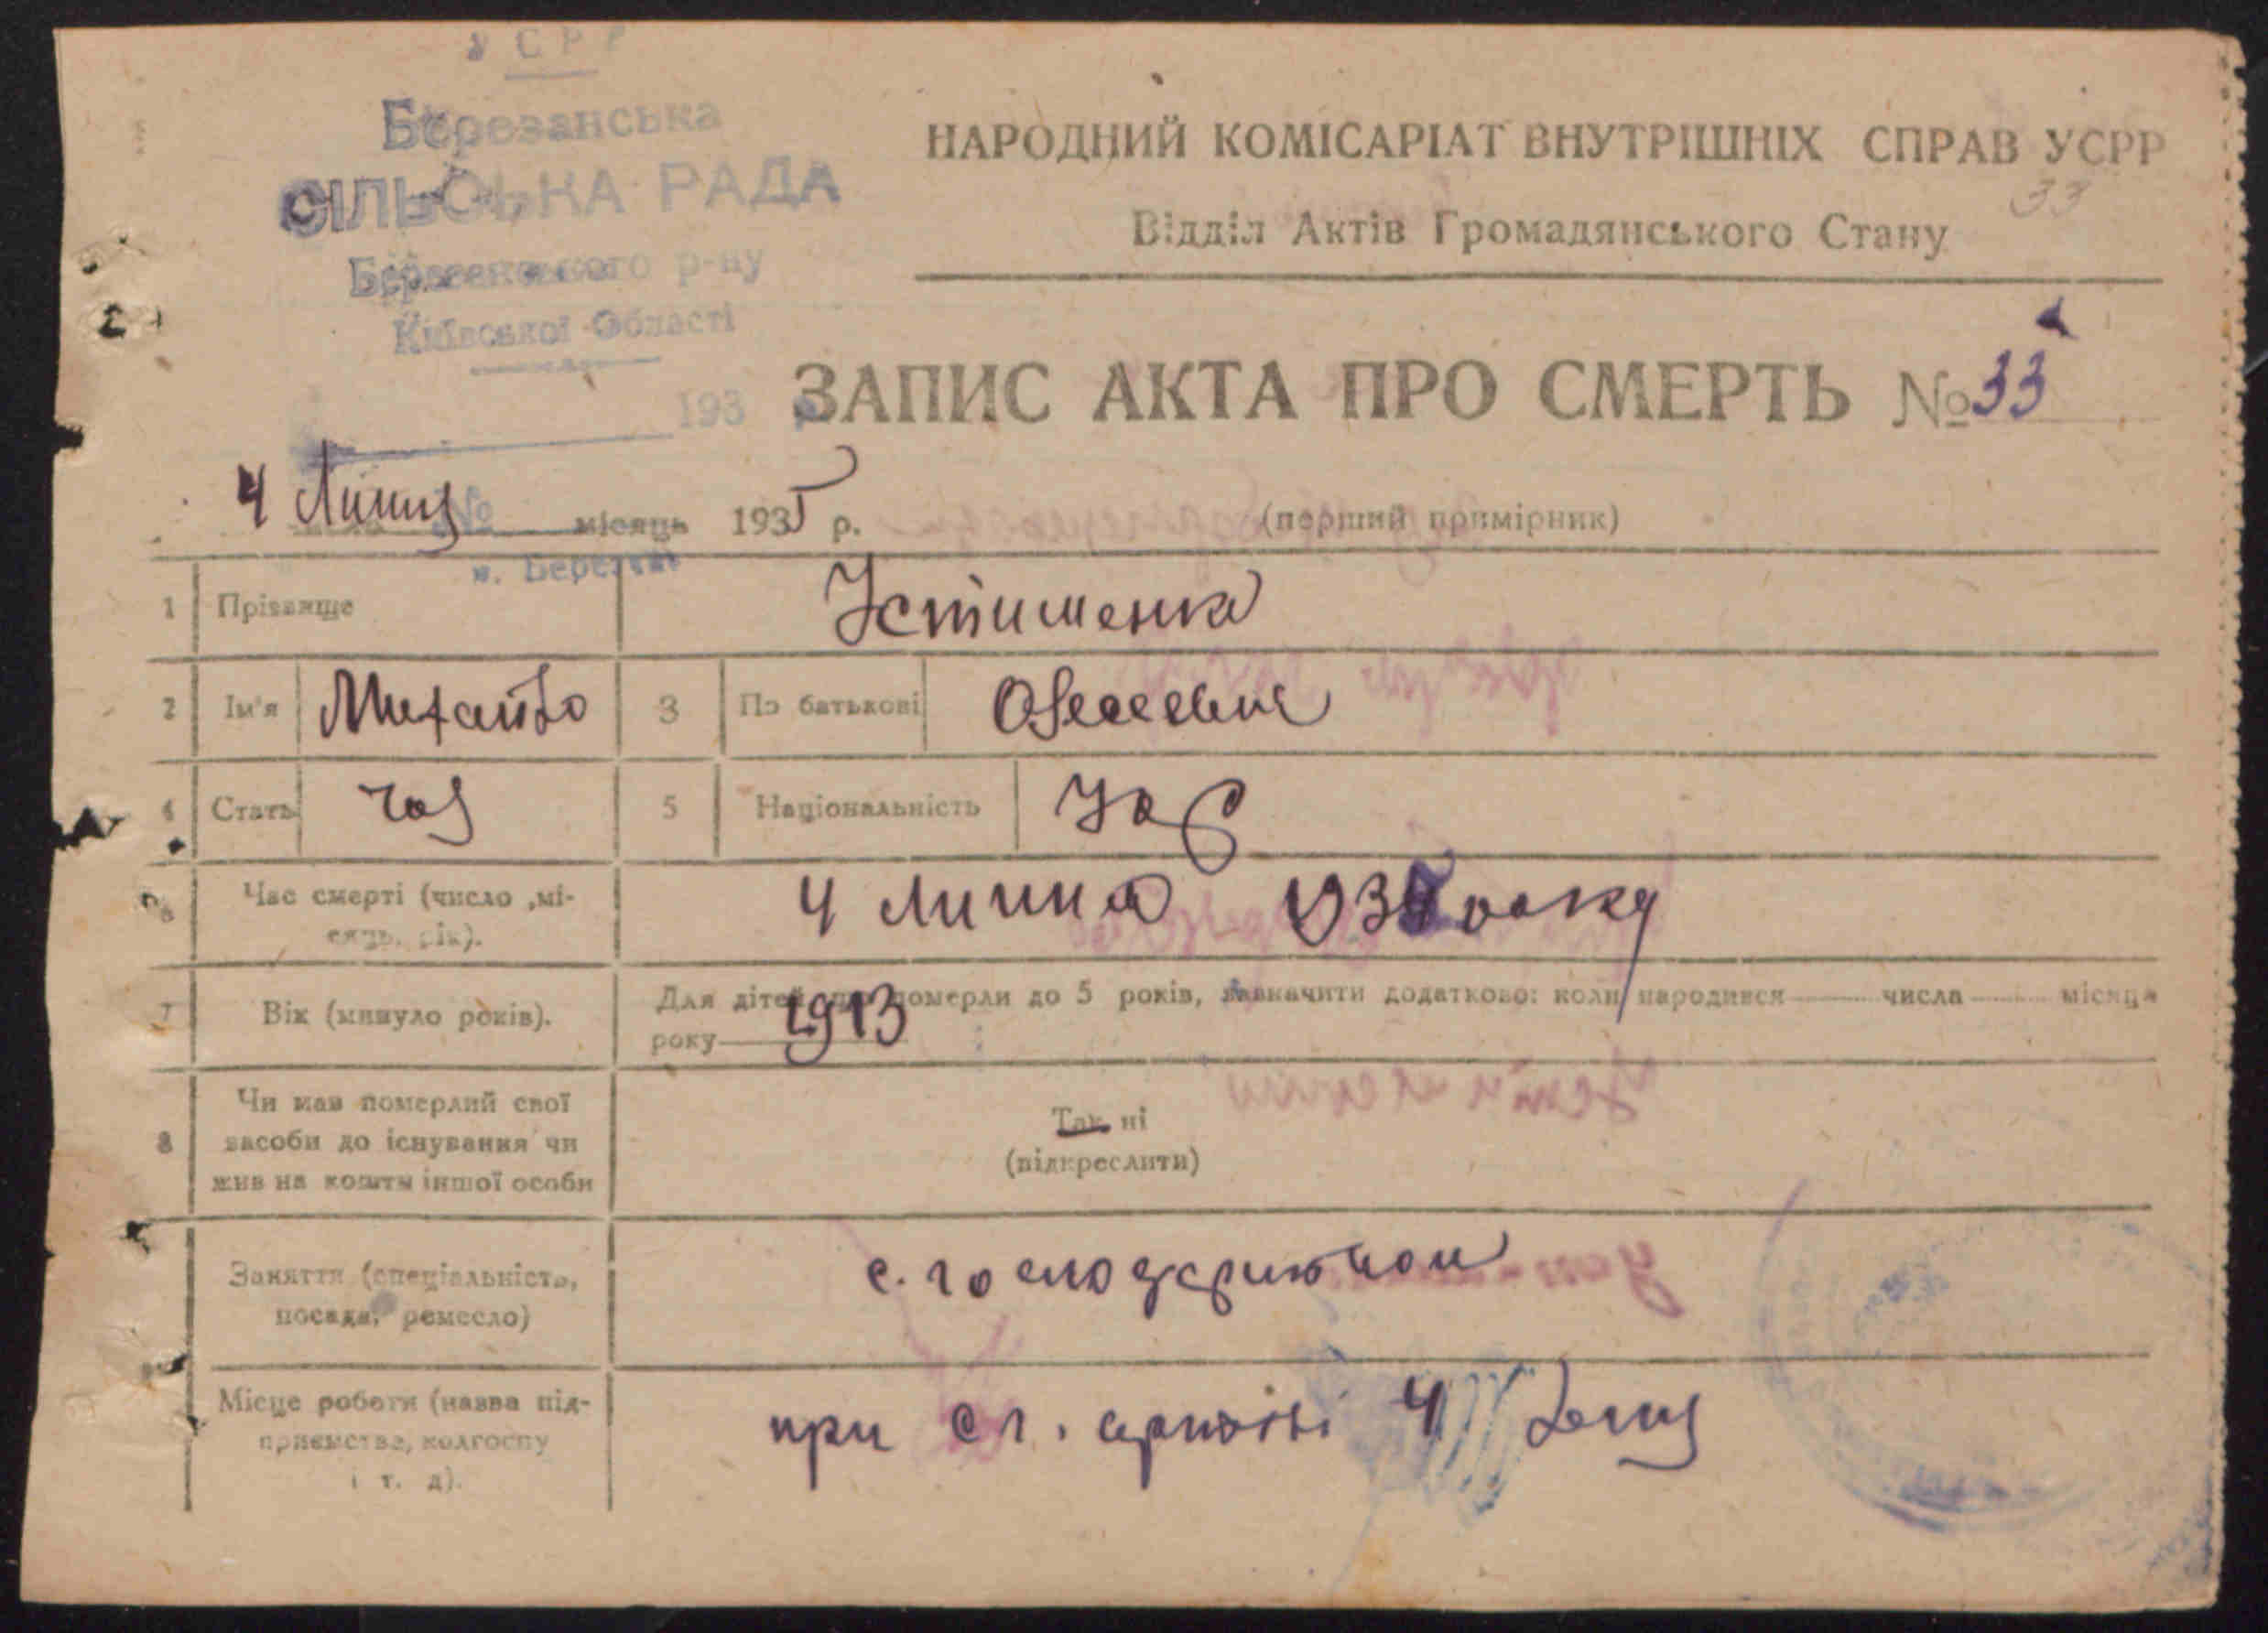 УСРР
Березанська
СІЛЬСЬКА РАДА
Березанського р-ну
Київської Області
193
№
м. Березань
НАРОДНИЙ КОМІСАРІАТ ВНУТРІШНІХ СПРАВ УСРР
33
Відділ Актів Громадянського Стану
ЗАПИС АКТА ПРО СМЕРТЬ № 33
4 Липня місяць 1935 р. (перший примірник)
1 Прізвище Устименко
2 Ім'я Михайло 3 По батькові
4 Стать чол 5 Національність Укр
6 Час смерті (число ,мі- 4 липня 1935 року
сяць, рік).
7 Вік (минуло років). Для дітей, що померли до 5 років, зазначити додатково: коли народився числа місяця
року 1913
8 Чи мав померлий свої
засоби до існування чи
жив на кошти іншої особи
Так ні
(підкреслити)
Заняття (спеціальність,
посада, ремесло)
с.
Місце роботи (назва під-
приємства, колгоспу
і т. д).
при с г.